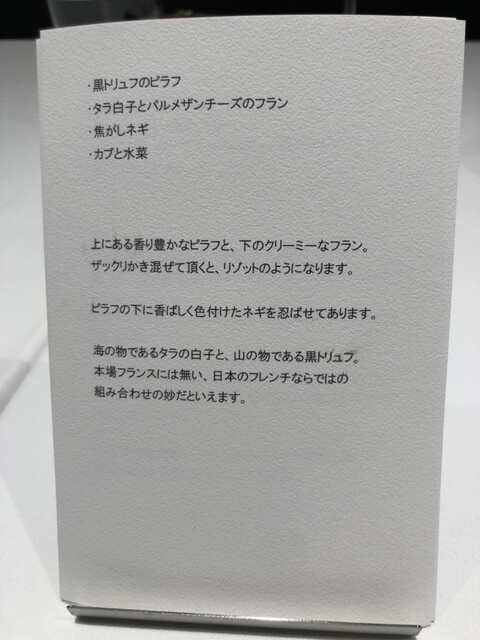 ・黒トリュフのピラフ
・タラ白子とパルメザンチーズのフラン
・焦がしネギ
・カブと水菜
上にある香り豊かなピラフと、下のクリーミーなフラン。
ザックリかき混ぜて頂くと、リゾットのようになります。
ピラフの下に香ばしく色付けたネギを忍ばせてあります。
海の物であるタラの白子と、山の物である黒トリュフ。
本場フランスには無い、日本のフレンチならではの
組み合わせの妙だといえます。